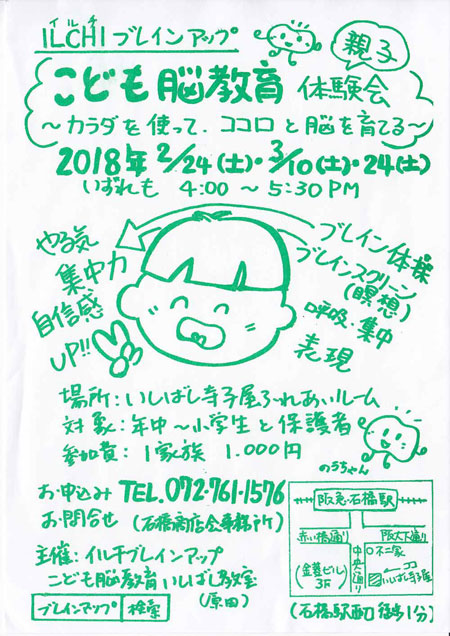 イルチ
ILCHI ブレインアップ
親子
こども脳教育 体験会
～カラダを使って、ココロと脳を育てる～
2018年 2/24(土)・3/10(土)・24(土)
いずれも 4:00～5:30PM
やる気
集中力
自信感
UP!!
ブレイン体操
ブレインスクリーン
(瞑想)
呼吸・集中
表現
場所：いしばし寺子屋ふれあいルーム
対象：年中～小学生と保護者
参加費：1家族 1.000円
のうちゃん
お申込み TEL.072-761-1576
お問合せ (石橋商店会事務所)
主催：イルチブレインアップ
こども脳教育いしばし教室
(原田)
ブレインアップ 検索
阪急・石橋駅
赤い橋通り
阪大下通り
中央通り
不二家
(金菱ビル)
3F
ココ
いしばし寺子屋
(石橋駅西口 徒歩1分)